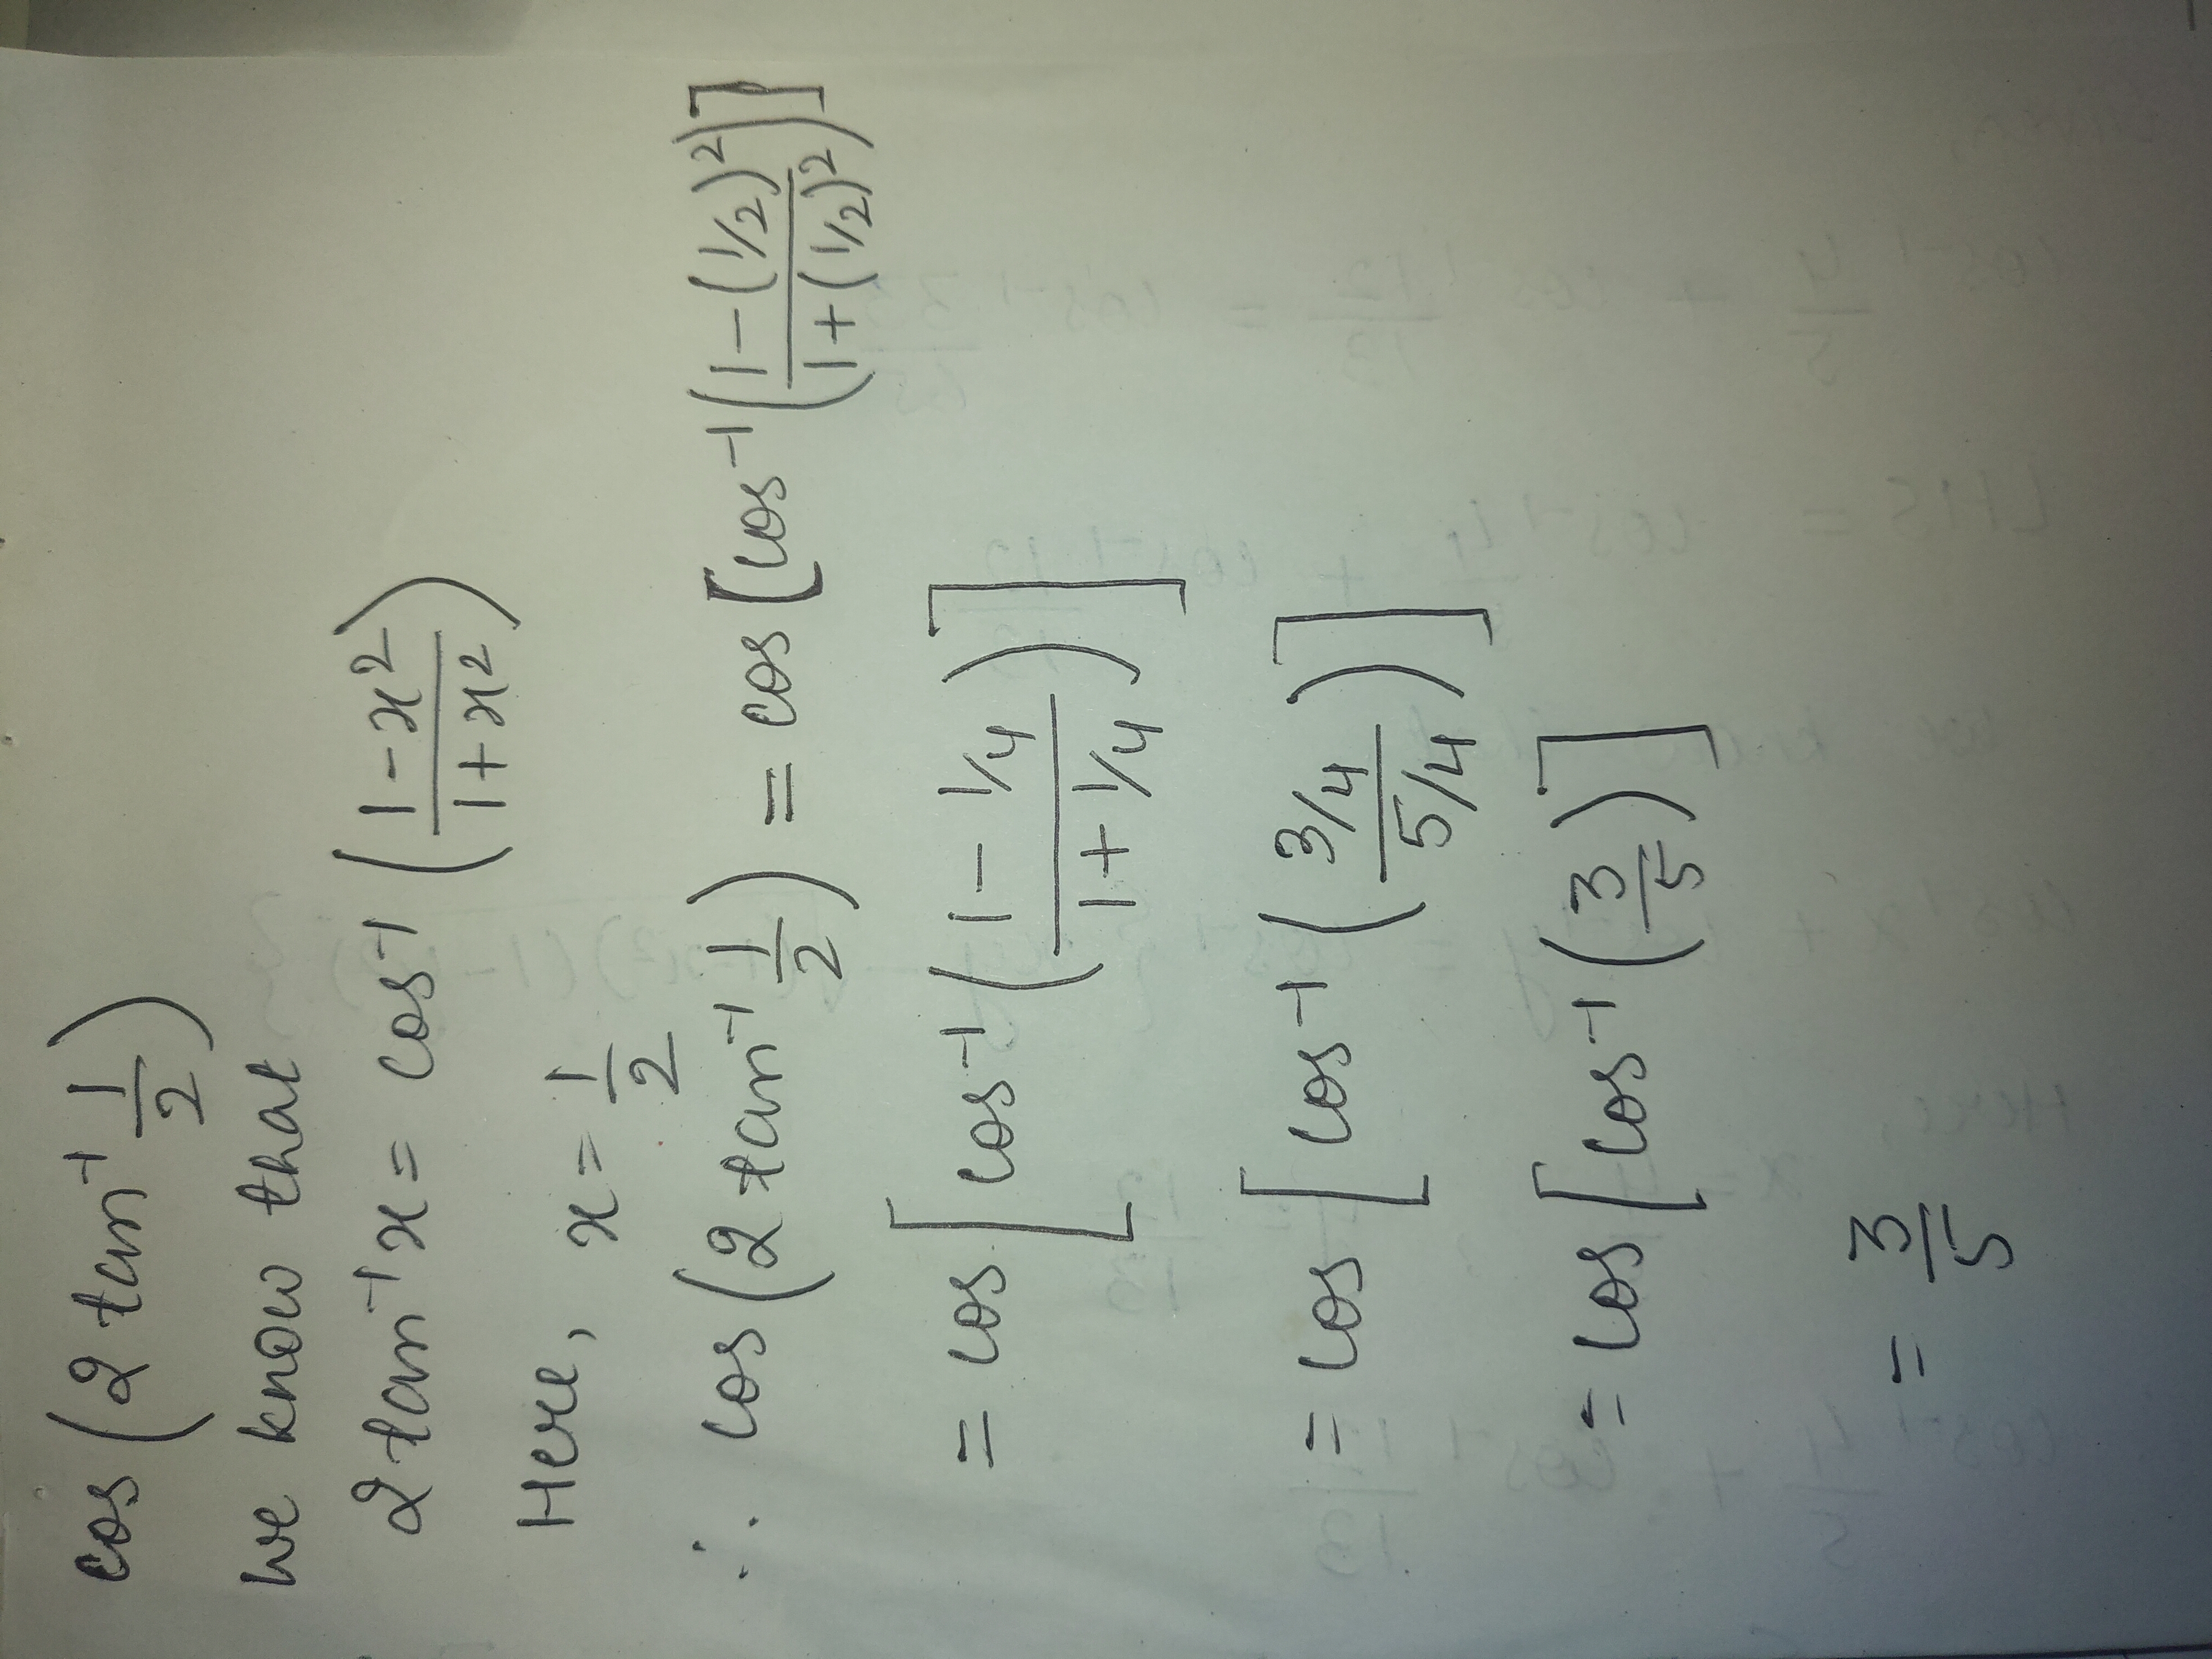 cos(2 tan⁻¹ 1/2)
we know that
2 tan⁻¹x = cos⁻¹ ((1-x²)/(1+x²))
Here, x = 1/2
∴ cos(2 tan⁻¹ 1/2) = cos[cos⁻¹((1-(1/2)²)/(1+(1/2)²))]
= cos[cos⁻¹((1- 1/4)/(1+ 1/4))]
= cos[cos⁻¹((3/4)/(5/4))]
= cos[cos⁻¹(3/5)]
= 3/5